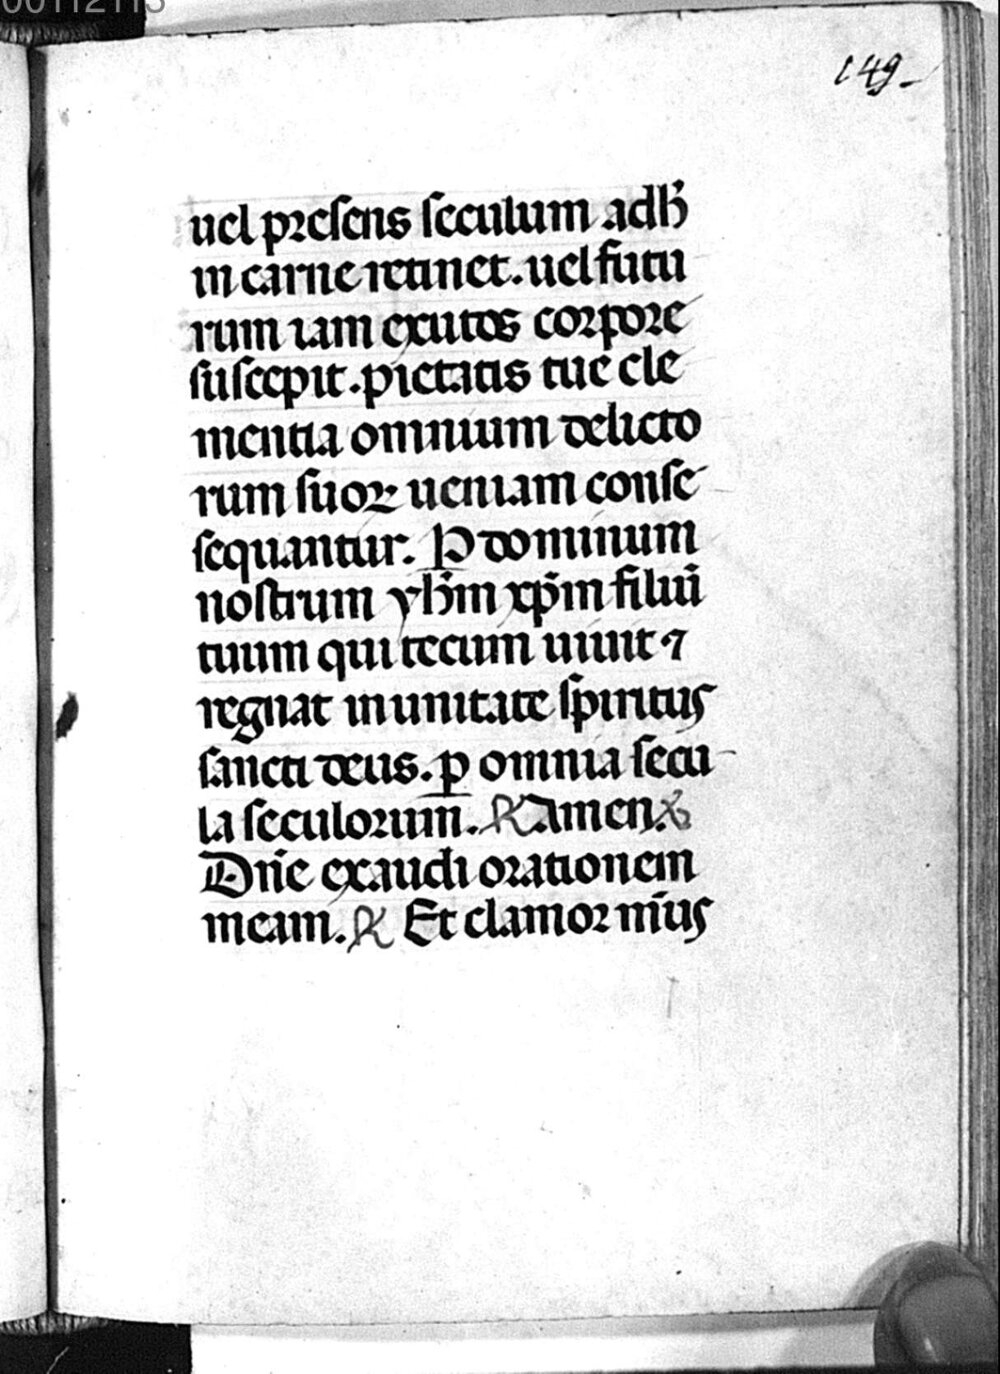 00112113
149
uel presens seculum adhꝰ
in carne retinet. uel futu
rum iam exutos corpore
suscepit. pietatis tue cle
mentia omnium delicto
rum suoꝝ ueniam conse
sequantur. P dominum
nostrum yhm̄ xp̄m filiū
tuum qui tecum uiuit ⁊
regnat in unitate spiritus
sancti deus. ꝑ omnia secu
la seculorum. ℟ Amen.
Dn̄e exaudi orationem
meam. ℟ Et clamor m̄us